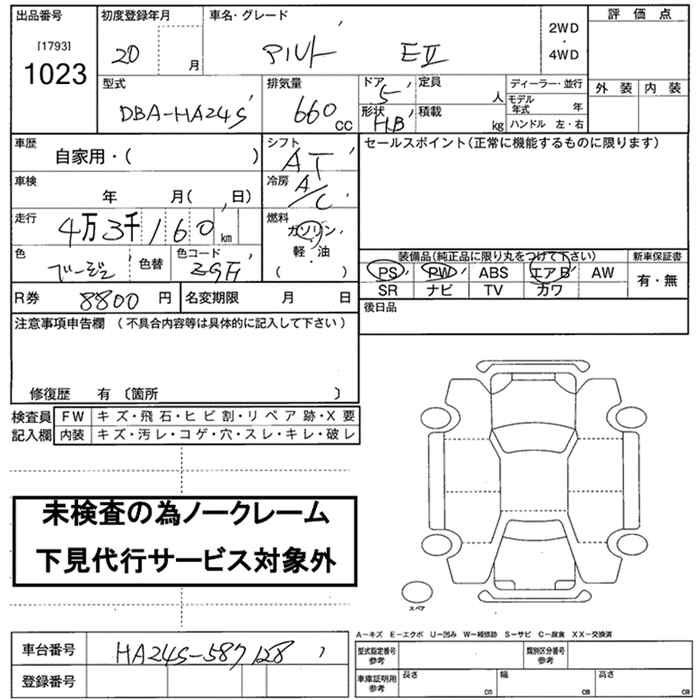 出品番号 初度登録年月 車名・グレード 評価点
[1793] 20 月 アルト EⅡ 2WD・4WD
1023 外装 内装
型式 排気量 ドア 定員 ディーラー・並行
DBA-HA24S 660 CC 5 人 モデル年式 年
形状 HB 積載 kg ハンドル 左・右
車歴 シフト セールスポイント(正常に機能するものに限ります)
自家用・( ) AT
車検 冷房
年 月( 、日) A/C
走行 燃料
4万3千160km ガソリン・
軽・油
色 色替 色コード ( ) 装備品(純品に限り丸をつけて下さい) 新車保証書
ベージュ PS PW ABS エアB AW 有・無
R券 8800 円 名変期限 月 日 SR ナビ TV カワ
注意事項申告欄 (不具合内容等は具体的に記入して下さい) 後日品
修復歴 有 〔箇所 〕
検査員 FW キズ・飛石・ヒビ割・リペア跡・X要
記入欄 内装 キズ・汚レ・コゲ・穴・スレ・キレ・破レ
未検査の為ノークレーム
下見代行サービス対象外
スペア
A-キズ E-エクボ U-凹み W-補修跡 S-サビ C-腐食 XX-交換済
車台番号 HA24S-587128 型式指定番号 参考 類別区分番号 参考
登録番号 車庫証明用 参考 長さ cm 幅 cm 高さ cm